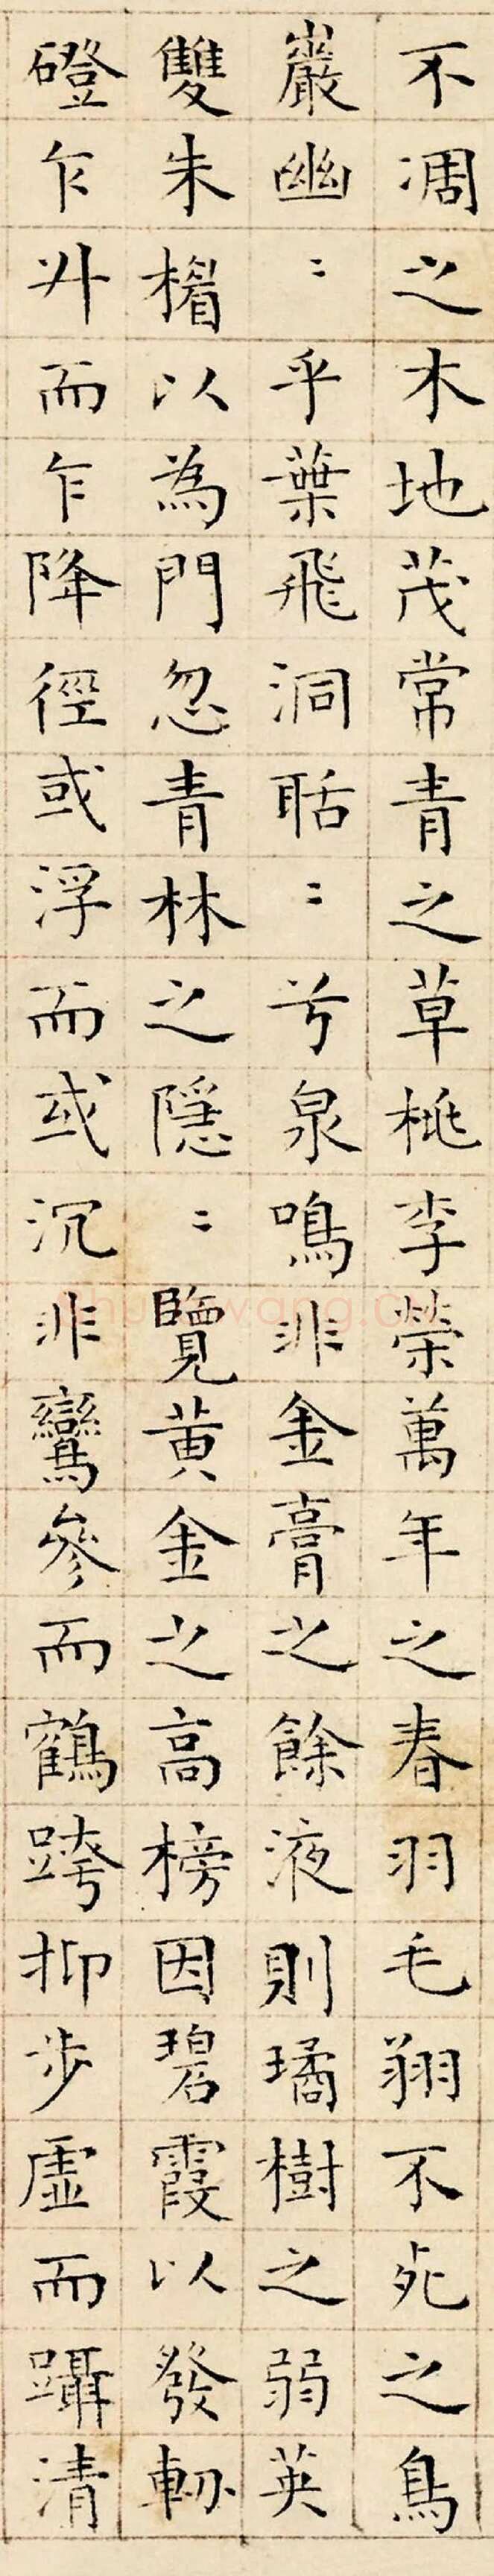 不凋之木地茂常青之草桃李榮萬年之春羽毛翔不死之鳥
巖幽〻乎葉飛洞聒〻兮泉鳴非金膏之餘液則璚樹之弱英
雙朱楣以為門忽青林之隱〻覽黃金之高榜因碧霞以發軔
磴乍升而乍降徑或浮而或沉非鸞參而鶴跨抑步虛而躡清